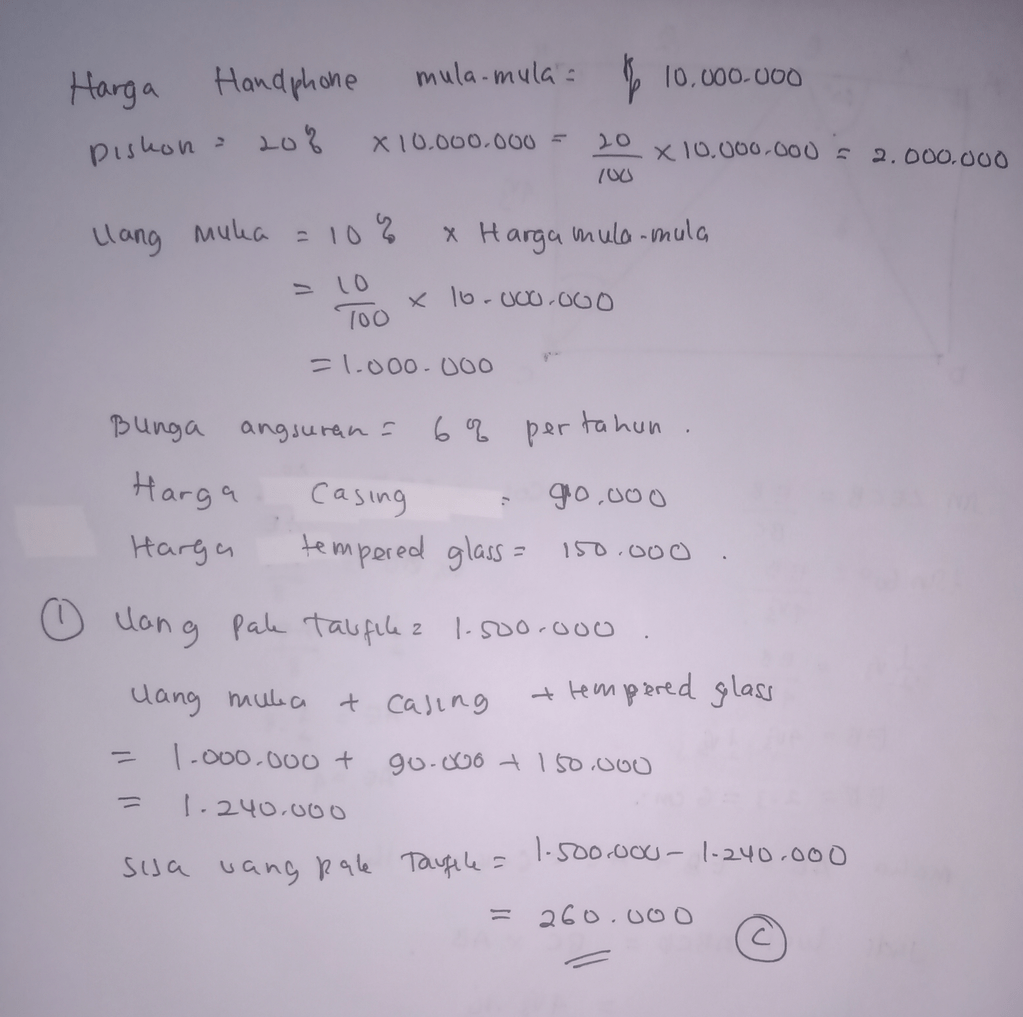 Harga Handphone mula-mula = Rp 10.000.000
Diskon = 20% × 10.000.000 = 20/100 × 10.000.000 = 2.000.000
Uang muka = 10% × Harga mula-mula
= 10/100 × 10.000.000
= 1.000.000
Bunga angsuran = 6% per tahun.
Harga Casing = 90.000
Harga tempered glass = 150.000.
① Uang pak taufik = 1.500.000.
Uang muka + casing + tempered glass
= 1.000.000 + 90.000 + 150.000
= 1.240.000
sisa uang pak Taufik = 1.500.000 - 1.240.000
= 260.000 Ⓒ